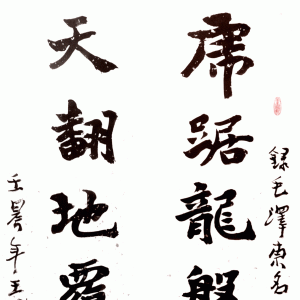 錄毛澤東名
虎踞龍盤
天翻地覆
壬
年